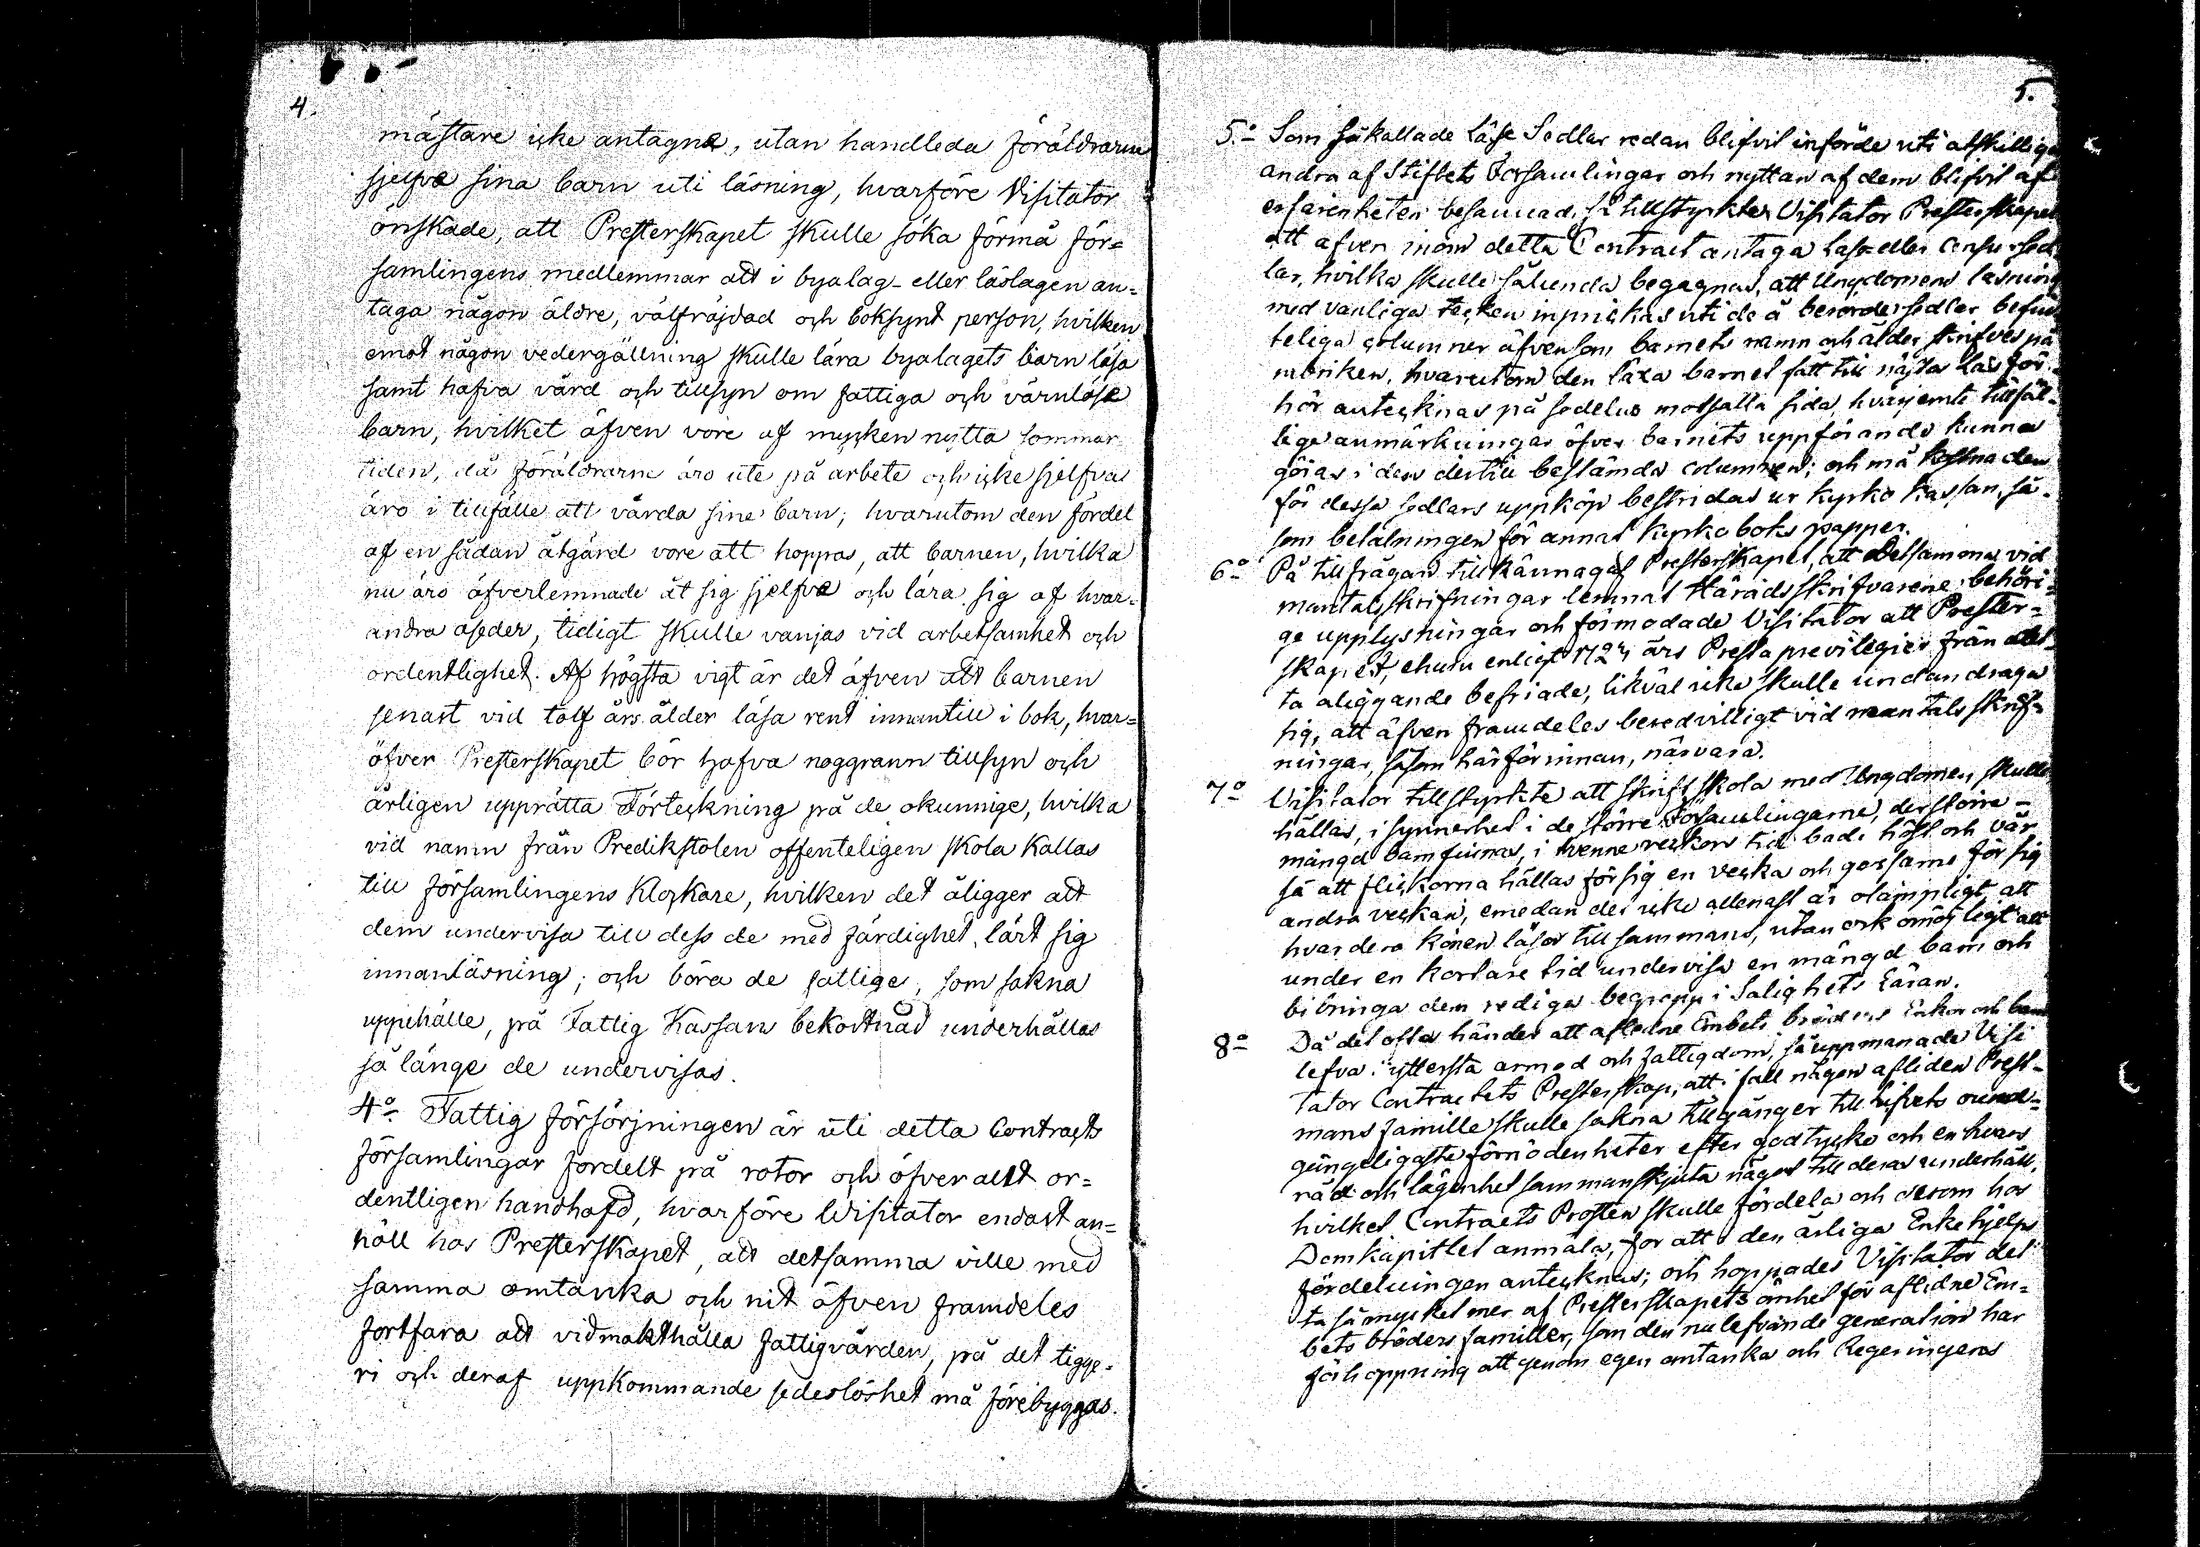 4.
mästare icke antagne, utan handleda föräldrarne
sjelfve sina barn uti läsning, hvarföre Visitator
önskade, att Presterskapet skulle söka förmå för=
samlingens medlemmar att i byalag- eller läslagen an=
taga någon äldre, välfräjdad och boksynt person, hvilken
emot någon vedergällning skulle lära byalagets barn läsa
samt hafva vård och tillsyn om fattiga och värnlöse
barn, hvilket äfven vore af mycken nytta sommar
tiden, då föräldrarne äro ute på arbete och icke sjelfva
äro i tillfälle att vårda sine barn; hvarutom den fördel
af en sådan åtgärd vore att hoppas, att barnen, hvilka
nu äro öfverlemnade åt sig sjelfve och lära sig af hvar=
andra oseder, tidigt skulle vänjas vid arbetsamhet och
ordentlighet. Af högsta vigt är det äfven att barnen
senast vid tolf års ålder läsa rent innantill i bok, hvar=
öfver Presterskapet bör hafva noggrann tillsyn och
årligen upprätta Förteckning på de okunnige, hvilka
vid namn från Predikstolen offenteligen skola kallas
till församlingens Klockare, hvilken det åligger att
dem undervisa till dess de med färdighet lärt sig
innanläsning; och böra de fattige, som sakna
uppehälle, på Fattig Kassans bekostnad underhållas
så länge de undervisas.
4:o Fattig försörjningen är uti detta Contracts
församlingar fördelt på rotor och öfverallt or=
dentligen handhafd, hvarföre Visitator endast an=
höll hos Presterskapet, att detsamma ville med
samma omtanka och nit äfven framdeles
fortfara att vidmakthålla fattigvården, på det tigge=
ri och deraf uppkommande sedeslöshet må förebyggas.
5.
5:o Som såkallade Läse Sedlar redan blifvit införde uti åtskillige
andra af Stiftets Församlingar och nyttan af dem blifvit af
erfarenheten besannad, så tillstyrkte Visitator Presterskapet
att äfven inom detta Contract antaga Läse eller Censur sed
lar, hvilka skulle sålunda begagnas, att Ungdomens läsning
med vanliga tecken inprickas uti de å berörde sedlar befin
teliga columner äfvensom barnets namn och ålder skrifves på
rubriken, hvarutom den läxa barnet fått till nästa Läsför=
hör antecknas på sedelns motsatta sida, hvarjemte tillfäl=
lige anmärkningar öfver barnets uppförande kunna
göras i den dertill bestämda columnen; och må kostnaden
för dessa sedlars uppköp bestridas ur kyrko kassan, så=
som betalningen för annat kyrko boks papper.
6:o På tillfrågan tillkännagaf Presterskapet, att detsamma vid
mantalsskrifningar lemnat Häradsskrifvarene behöri=
ge upplysningar och förmodade Visitator att Prester=
skapet, ehuru enligt 1723 års Presta previlegier från det=
ta åliggande befriade, likväl icke skulle undandraga
sig, att äfven framdeles beredvilligt vid mantals skrif=
ningar, såsom härförinnan, närvara.
7:o Visitator tillstyrkte att skriftskola med Ungdomen skulle
hållas, i synnerhet i de större Församlingarne, der större
mängd barn finnas, i tvenne veckors tid både höst och vår
så att flickorna hållas för sig en vecka och gossarne för sig
andra veckan, emedan det icke allenast är olämpligt att
hvardera könen läsa tillsammans, utan ock omöjligt att
under en kortare tid undervisa en mängd barn och
bibringa dem rediga begrepp i Salighets Läran.
8:o Då det ofta händer att aflidne Embets bröders Enkor och barn
lefva i yttersta armod och fattigdom, så uppmanade Visi
tator Contractets Presterskap, att i fall någon afliden Prest=
mans familie skulle sakna tillgånger till lifvets ound=
gängeligaste förnödenheter efter godtycke och en hvars
råd och lägenhet sammanskjuta något till deras underhåll,
hvilket Contracts Prosten skulle fördela och derom hos
Domkapitlet anmäla, för att i den årliga Enkehjelps
fördelningen antecknas; och hoppades Visitator det
ta så mycket mer af Presterskapets ömhet för aflidne Em=
bets bröders familler, som den nulefvande generation har
förhoppning att genom egen omtanka och Regeringens